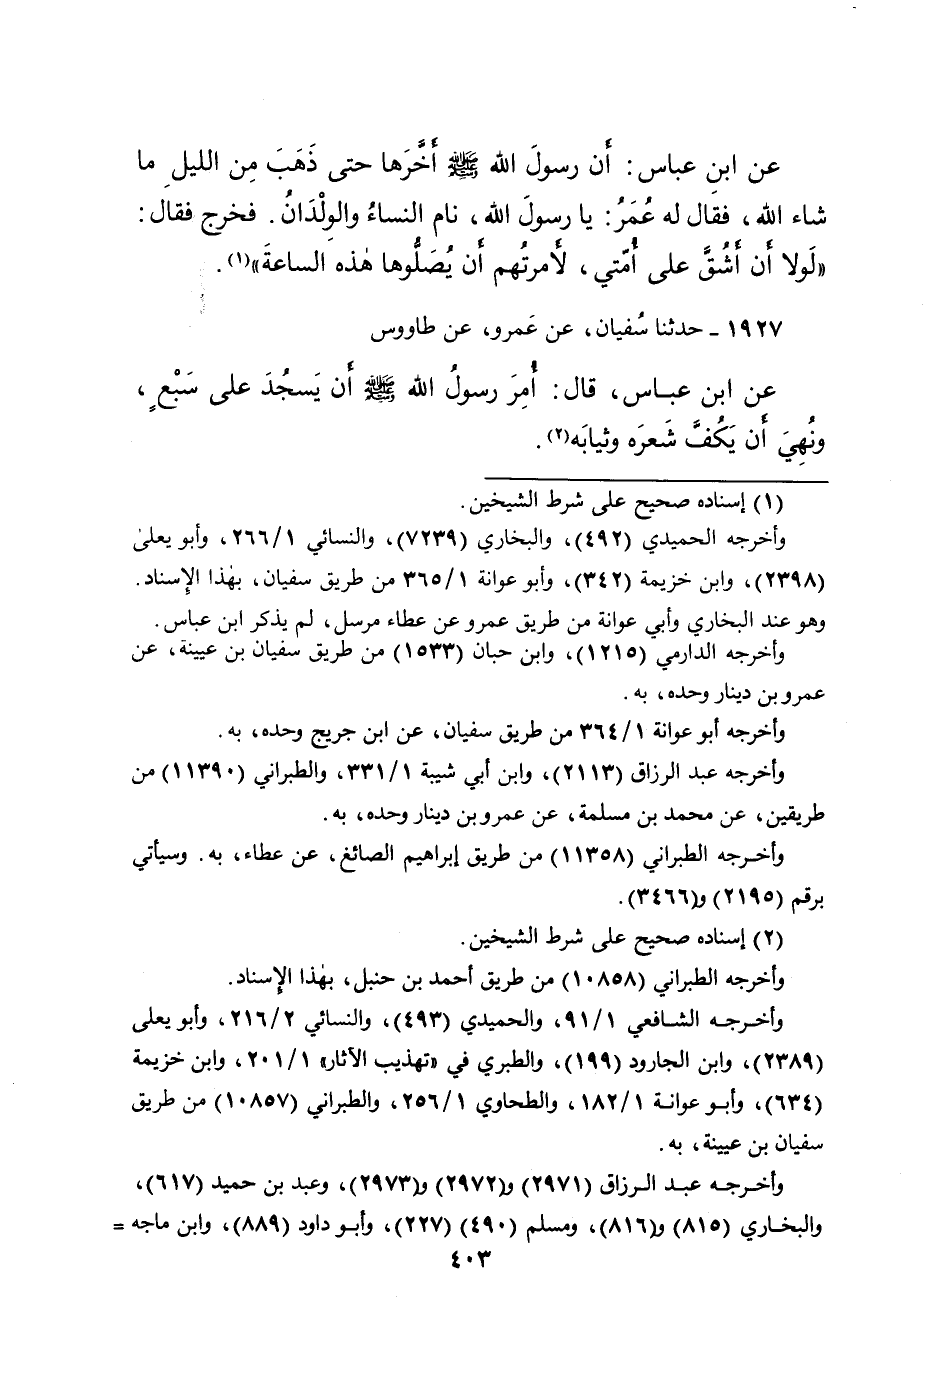 عن ابن عباس: أَن رسولَ الله ﷺ أَخَّرَها حتى ذَهَبَ مِن الليلِ ما
شاء الله، فقال له عُمَرُ: يا رسولَ الله، نام النساءُ والوِلْدَانُ. فخرج فقال:
«لَولا أَن أَشُقَّ على أُمّتي، لأَمرتُهم أَن يُصَلُّوها هٰذه الساعةَ»(١).
١٩٢٧ ـ حدثنا سُفيان، عن عَمرو، عن طاووس
عن ابن عباس، قال: أُمِرَ رسولُ الله ﷺ أَن يَسجُدَ على سَبْعٍ،
ونُهِيَ أَن يَكُفَّ شَعرَه وثيابَه(٢).
(١) إسناده صحيح على شرط الشيخين.
وأخرجه الحميدي (٤٩٢)، والبخاري (٧٢٣٩)، والنسائي ٢٦٦/١، وأبو يعلىٰ
(٢٣٩٨)، وابن خزيمة (٣٤٢)، وأبو عوانة ٣٦٥/١ من طريق سفيان، بهٰذا الإِسناد.
وهو عند البخاري وأبي عوانة من طريق عمرو عن عطاء مرسل، لم يذكر ابن عباس.
وأخرجه الدارمي (١٢١٥)، وابن حبان (١٥٣٣) من طريق سفيان بن عيينة، عن
عمرو بن دينار وحده، به.
وأخرجه أبو عوانة ٣٦٤/١ من طريق سفيان، عن ابن جريج وحده، به.
وأخرجه عبد الرزاق (٢١١٣)، وابن أبي شيبة ٣٣١/١، والطبراني (١١٣٩٠) من
طريقين، عن محمد بن مسلمة، عن عمرو بن دينار وحده، به.
وأخرجه الطبراني (١١٣٥٨) من طريق إبراهيم الصائغ، عن عطاء، به. وسيأتي
برقم (٢١٩٥) و(٣٤٦٦).
(٢) إسناده صحيح على شرط الشيخين.
وأخرجه الطبراني (١٠٨٥٨) من طريق أحمد بن حنبل، بهٰذا الإِسناد.
وأخرجه الشافعي ٩١/١، والحميدي (٤٩٣)، والنسائي ٢١٦/٢، وأبو يعلى
(٢٣٨٩)، وابن الجارود (١٩٩)، والطبري في «تهذيب الآثار» ٢٠١/١، وابن خزيمة
(٦٣٤)، وأبو عوانة ١٨٢/١، والطحاوي ٢٥٦/١، والطبراني (١٠٨٥٧) من طريق
سفيان بن عيينة، به.
وأخرجه عبد الرزاق (٢٩٧١) و(٢٩٧٢) و(٢٩٧٣)، وعبد بن حميد (٦١٧)،
والبخاري (٨١٥) و(٨١٦)، ومسلم (٤٩٠) (٢٢٧)، وأبو داود (٨٨٩)، وابن ماجه =
٤٠٣